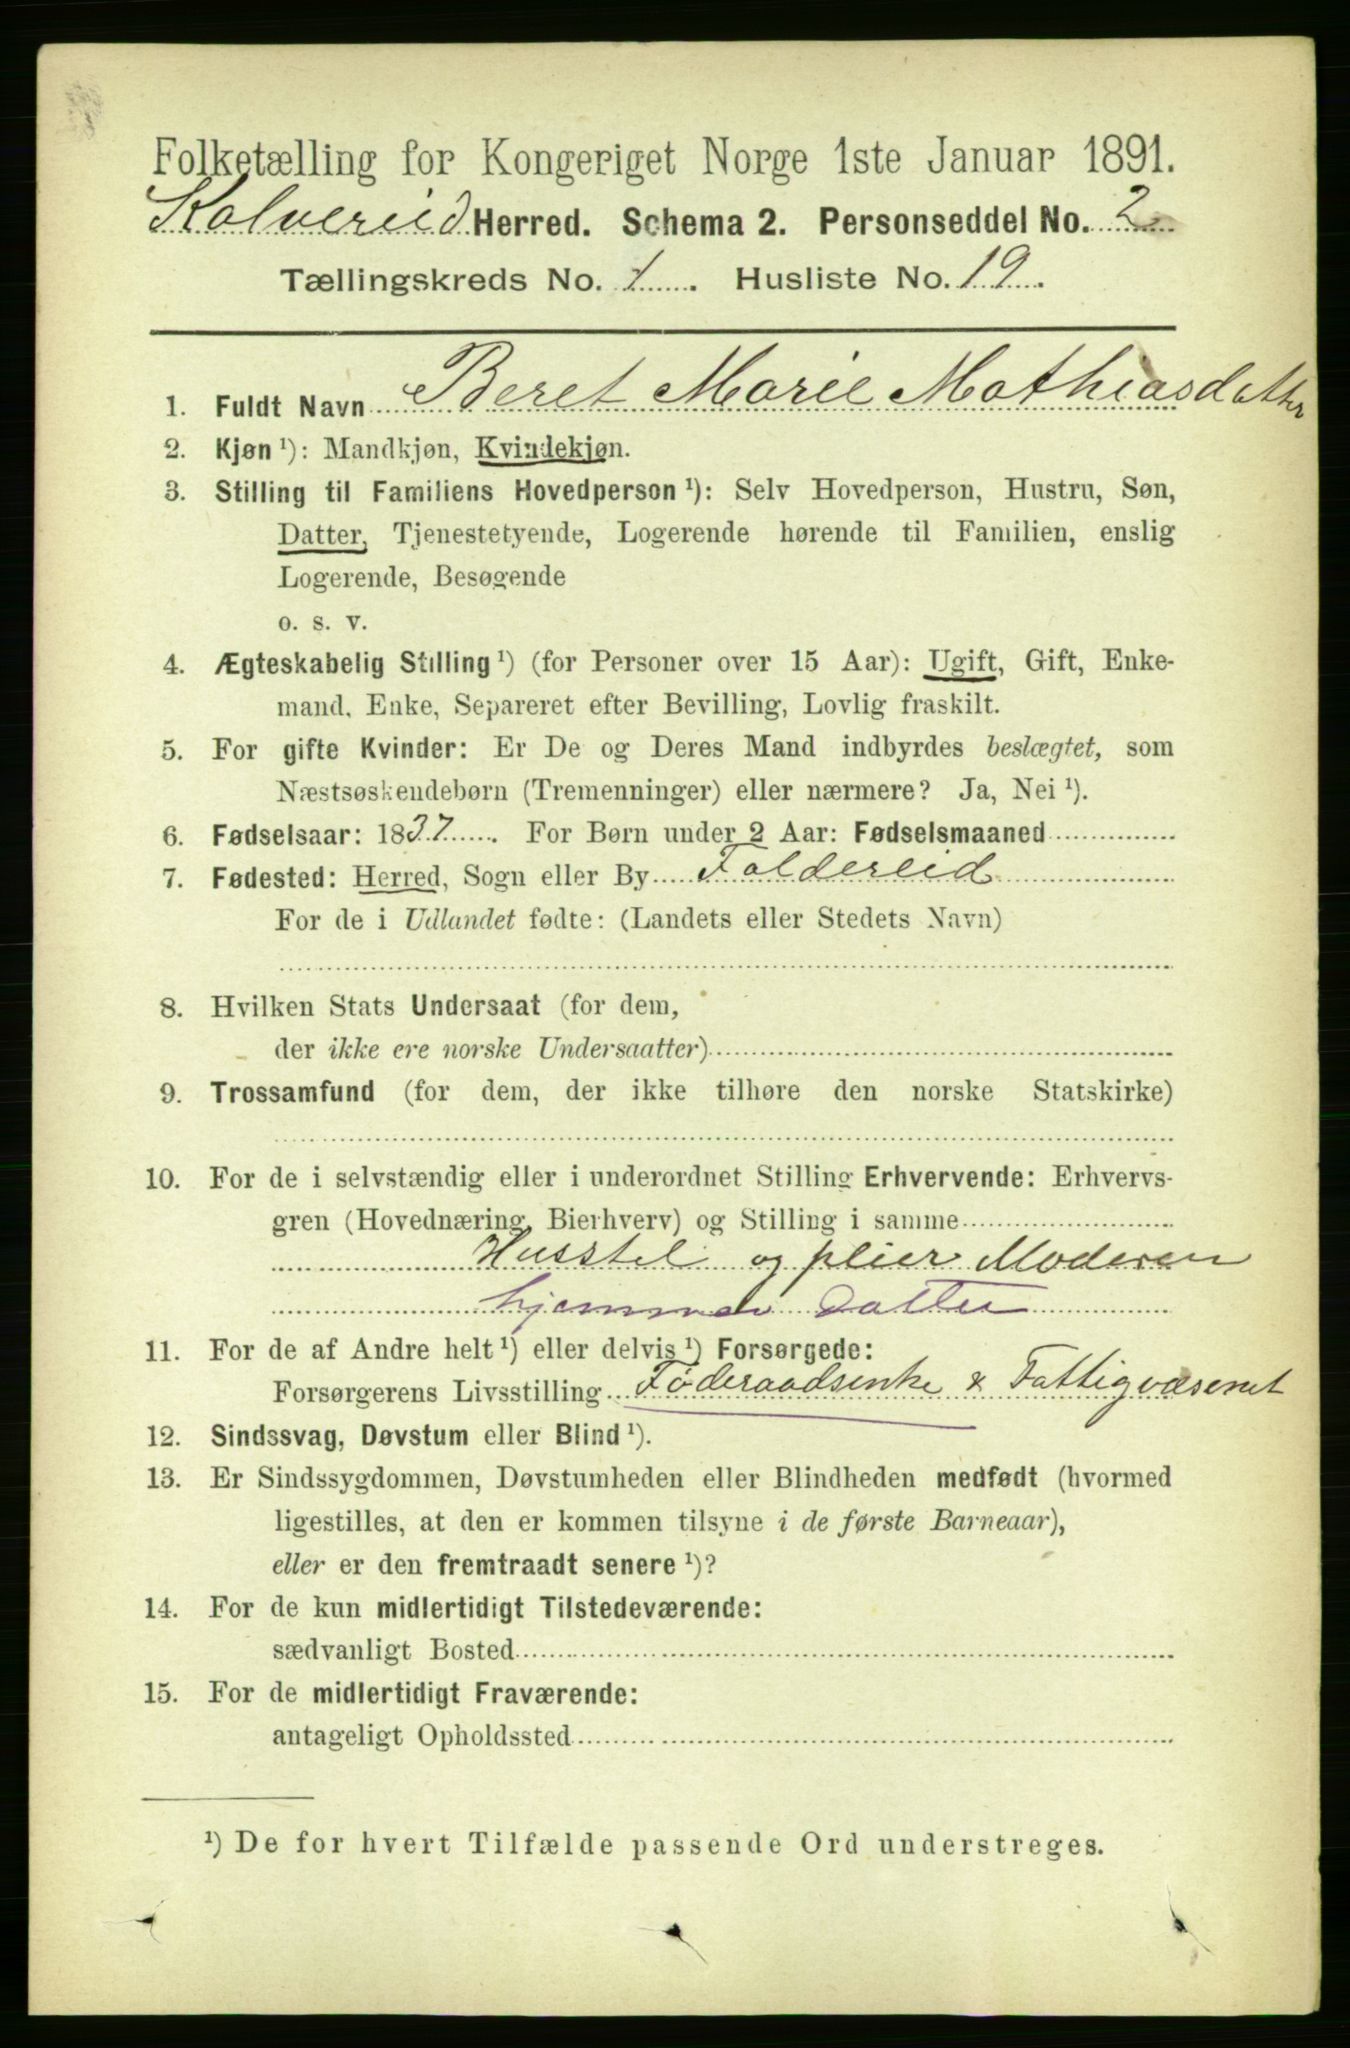 Folketælling for Kongeriget Norge 1ste Januar 1891.
Kolvereid Herred. Schema 2. Personseddel No. 2
Tællingskreds No. 1. Husliste No. 19.
1. Fuldt Navn Beret Marie Mathiasdatter
2. Kjøn ¹): Mandkjøn, Kvindekjøn.
3. Stilling til Familiens Hovedperson ¹): Selv Hovedperson, Hustru, Søn,
Datter, Tjenestetyende, Logerende hørende til Familien, enslig
Logerende, Besøgende
o. s. v.
4. Ægteskabelig Stilling ¹) (for Personer over 15 Aar): Ugift, Gift, Enke-
mand, Enke, Separeret efter Bevilling, Lovlig fraskilt.
5. For gifte Kvinder: Er De og Deres Mand indbyrdes beslægtet, som
Næstsøskendebørn (Tremenninger) eller nærmere? Ja, Nei ¹).
6. Fødselsaar: 1837. For Børn under 2 Aar: Fødselsmaaned
7. Fødested: Herred, Sogn eller By Foldereid
For de i Udlandet fødte: (Landets eller Stedets Navn)
8. Hvilken Stats Undersaat (for dem,
der ikke ere norske Undersaatter)
9. Trossamfund (for dem, der ikke tilhøre den norske Statskirke)
10. For de i selvstændig eller i underordnet Stilling Erhvervende: Erhvervs-
gren (Hovednæring, Bierhverv) og Stilling i samme
Husstel og pleier Moderen
hjemmev Datter
11. For de af Andre helt ¹) eller delvis ¹) Forsørgede:
Forsørgerens Livsstilling Føderaadsenke & Fattigvæsenet
12. Sindssvag, Døvstum eller Blind ¹).
13. Er Sindssygdommen, Døvstumheden eller Blindheden medfødt (hvormed
ligestilles, at den er kommen tilsyne i de første Barneaar),
eller er den fremtraadt senere ¹)?
14. For de kun midlertidigt Tilstedeværende:
sædvanligt Bosted
15. For de midlertidigt Fraværende:
antageligt Opholdssted
¹) De for hvert Tilfælde passende Ord understreges.